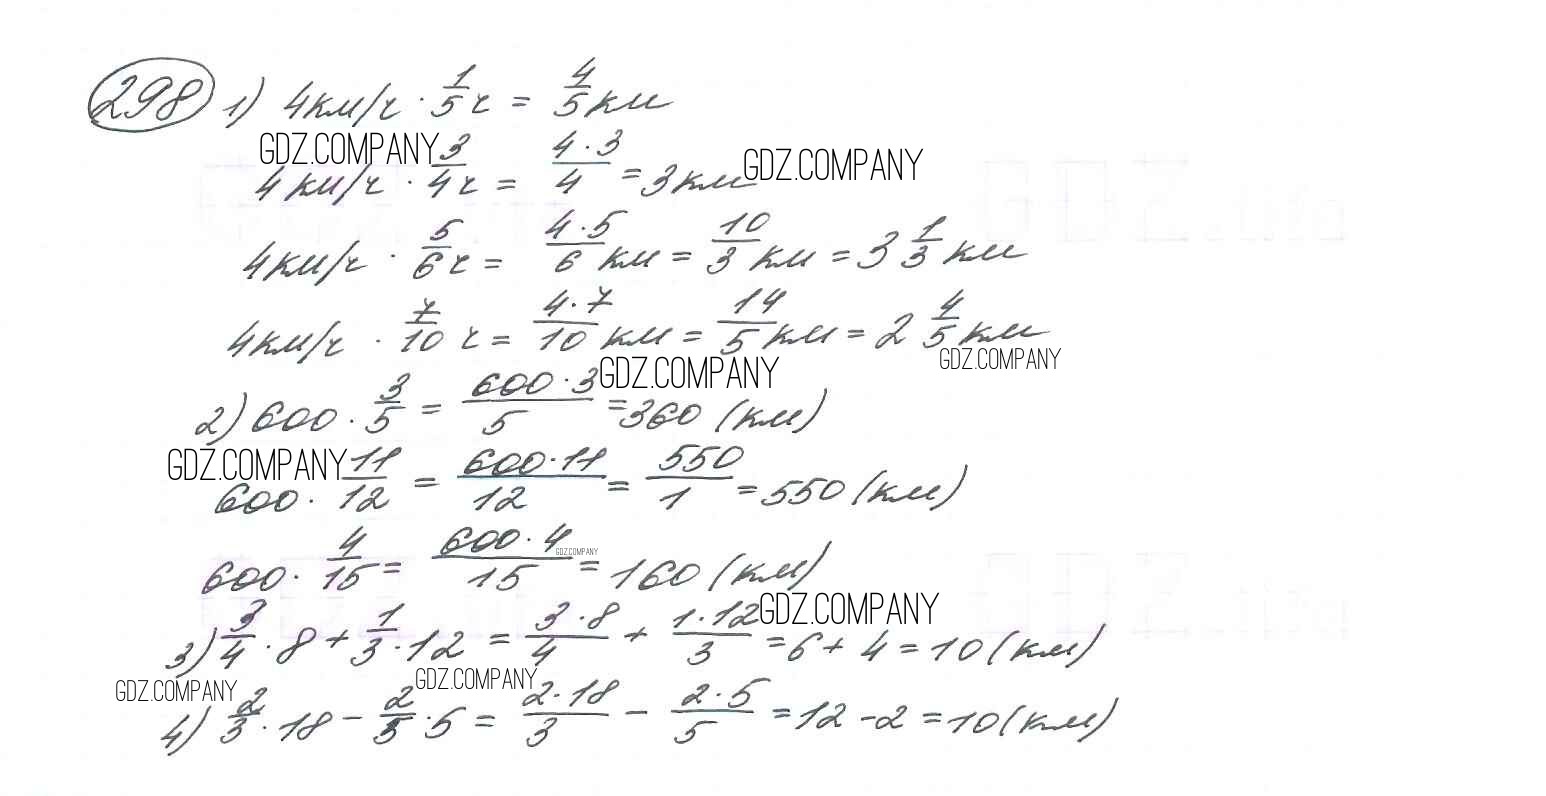 298 1) 4км/ч · 1/5 ч = 4/5 км
GDZ.COMPANY
4км/ч · 3/4 ч = 4·3/4 = 3км GDZ.COMPANY
4км/ч · 5/6 ч = 4·5/6 км = 10/3 км = 3 1/3 км
4км/ч · 7/10 ч = 4·7/10 км = 14/5 км = 2 4/5 км
GDZ.COMPANY
2) 600 · 3/5 = 600·3/5 = 360 (км)
GDZ.COMPANY
GDZ.COMPANY
600 · 11/12 = 600·11/12 = 550/1 = 550 (км)
600 · 4/15 = 600·4/15 = 160 (км)
GDZ.COMPANY
GDZ.COMPANY
3) 3/4 · 8 + 1/3 · 12 = 3·8/4 + 1·12/3 = 6 + 4 = 10 (км)
GDZ.COMPANY
GDZ.COMPANY
4) 2/3 · 18 - 2/5 · 5 = 2·18/3 - 2·5/5 = 12 - 2 = 10 (км)